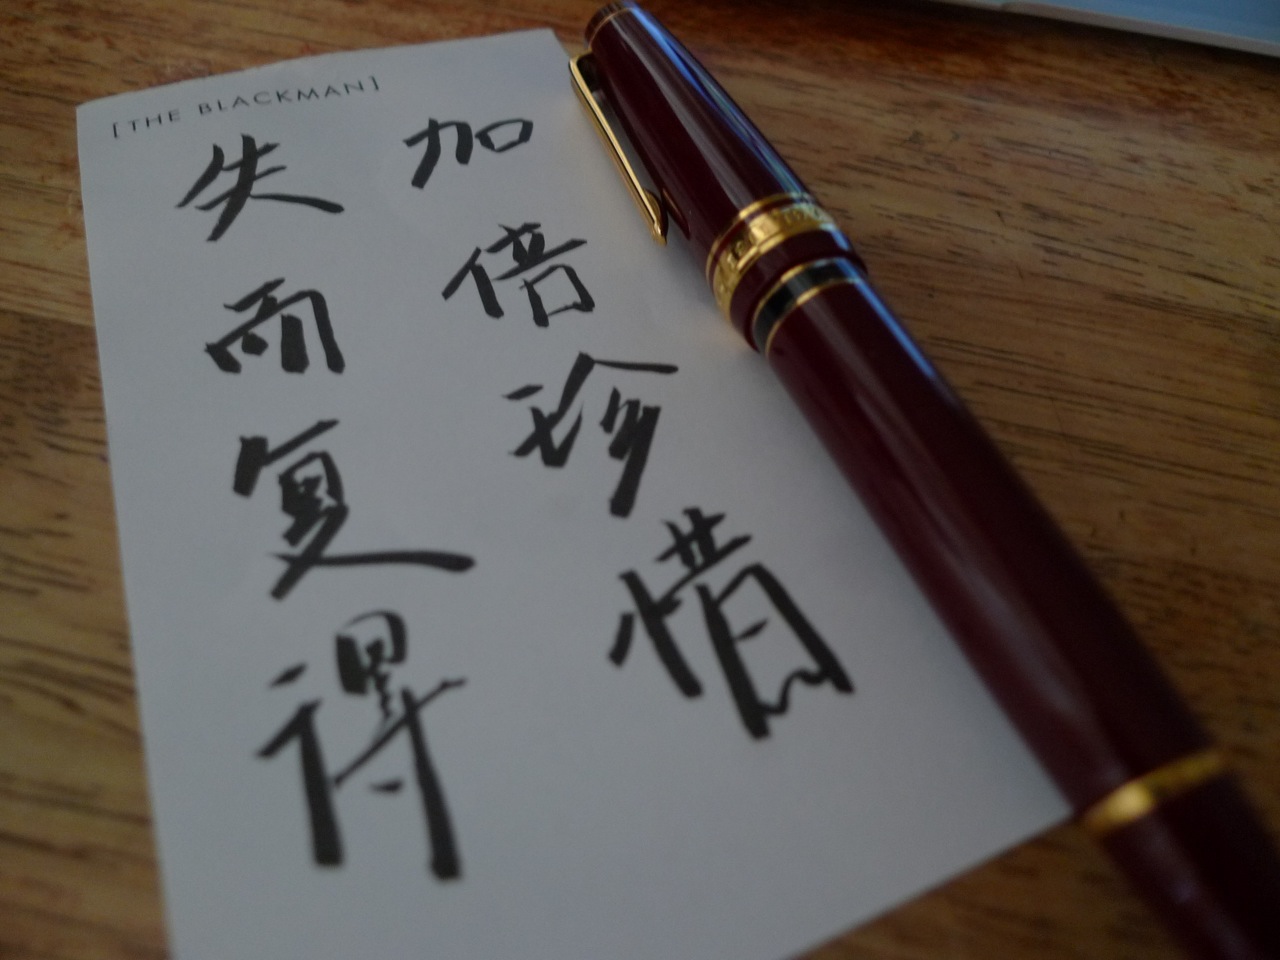 [THE BLACKMAN]
失而复得
加倍珍惜